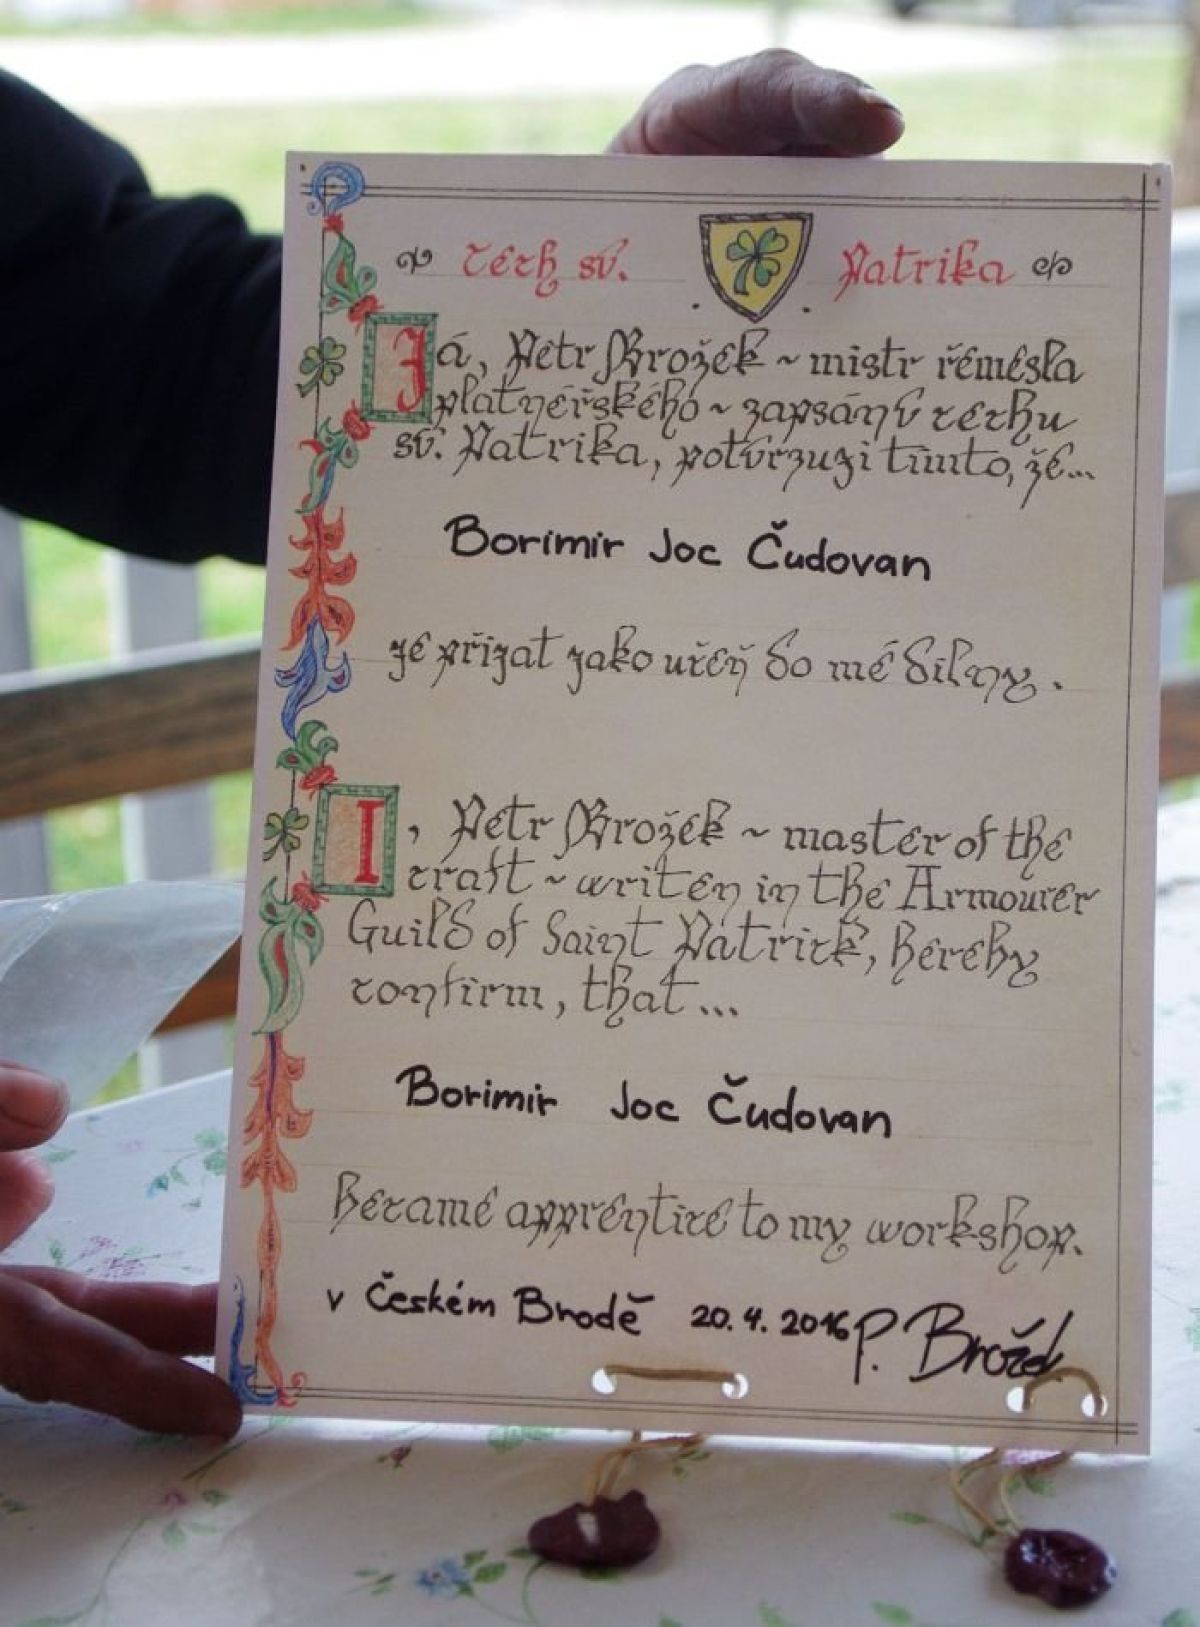 Cech sv. Patrika
Já, Petr Brožek ~ mistr řemesla
platnéřského ~ zapsán v cechu
sv. Patrika, potvrzuji tímto, že...
Borimir Joc Čudovan
je přijat jako učeň do mé dílny.
I, Petr Brožek ~ master of the
craft ~ writen in the Armourer
Guild of Saint Patrick, hereby
confirm, that...
Borimir Joc Čudovan
became apprentice to my workshop.
v Českém Brodě 20. 4. 2016 P. Brožek